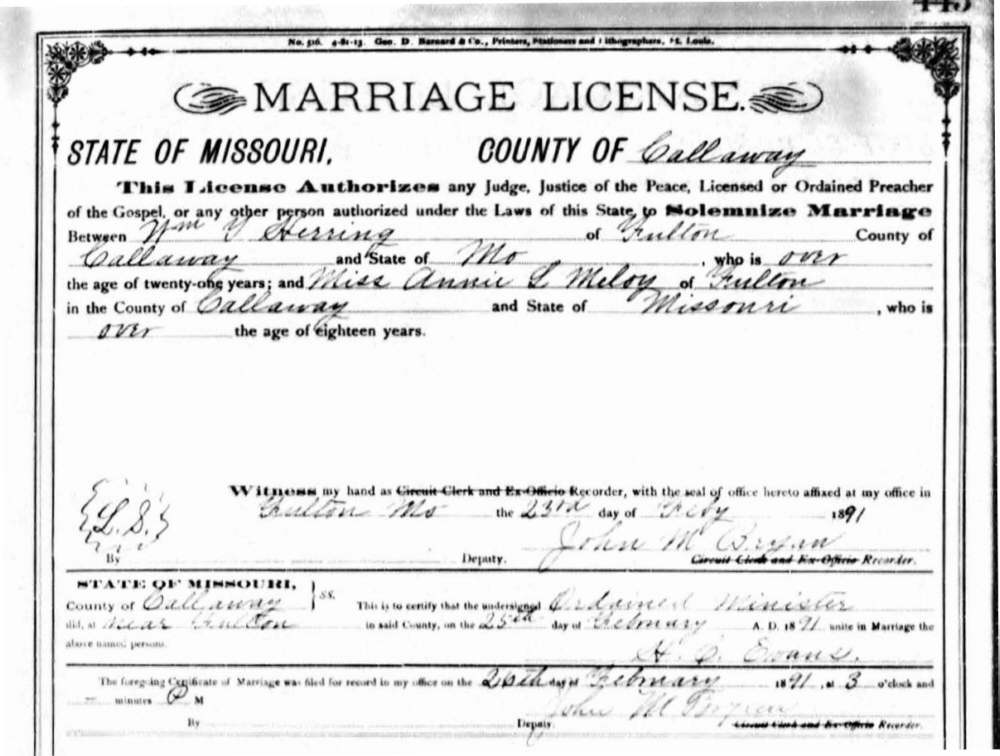 443
No. 516. 4-81-13. Geo. D. Barnard & Co., Printers, Stationers and Lithographers, St. Louis.
MARRIAGE LICENSE.
STATE OF MISSOURI, COUNTY OF Callaway
This License Authorizes any Judge, Justice of the Peace, Licensed or Ordained Preacher
of the Gospel, or any other person authorized under the Laws of this State, to Solemnize Marriage
Between Wm Y Herring of Fulton County of
Callaway and State of Mo , who is over
the age of twenty-one years; and Miss Annie L Meloy of Fulton
in the County of Callaway and State of Missouri , who is
over the age of eighteen years.
Witness my hand as Circuit Clerk and Ex-Officio Recorder, with the seal of office hereto affixed at my office in
{L. S.} Fulton Mo the 23rd day of Feby 1891
John M Bryan
By Deputy. Circuit Clerk and Ex-Officio Recorder.
STATE OF MISSOURI,
County of Callaway } ss. This is to certify that the undersigned Ordained Minister
did, at near Fulton in said County, on the 25th day of February A. D. 1891 unite in Marriage the
above named persons. H. C. Evans.
The foregoing Certificate of Marriage was filed for record in my office on the 26th day of February 1891, at 3 o'clock and
— minutes P M John M Bryan
By Deputy. Circuit Clerk and Ex-Officio Recorder.